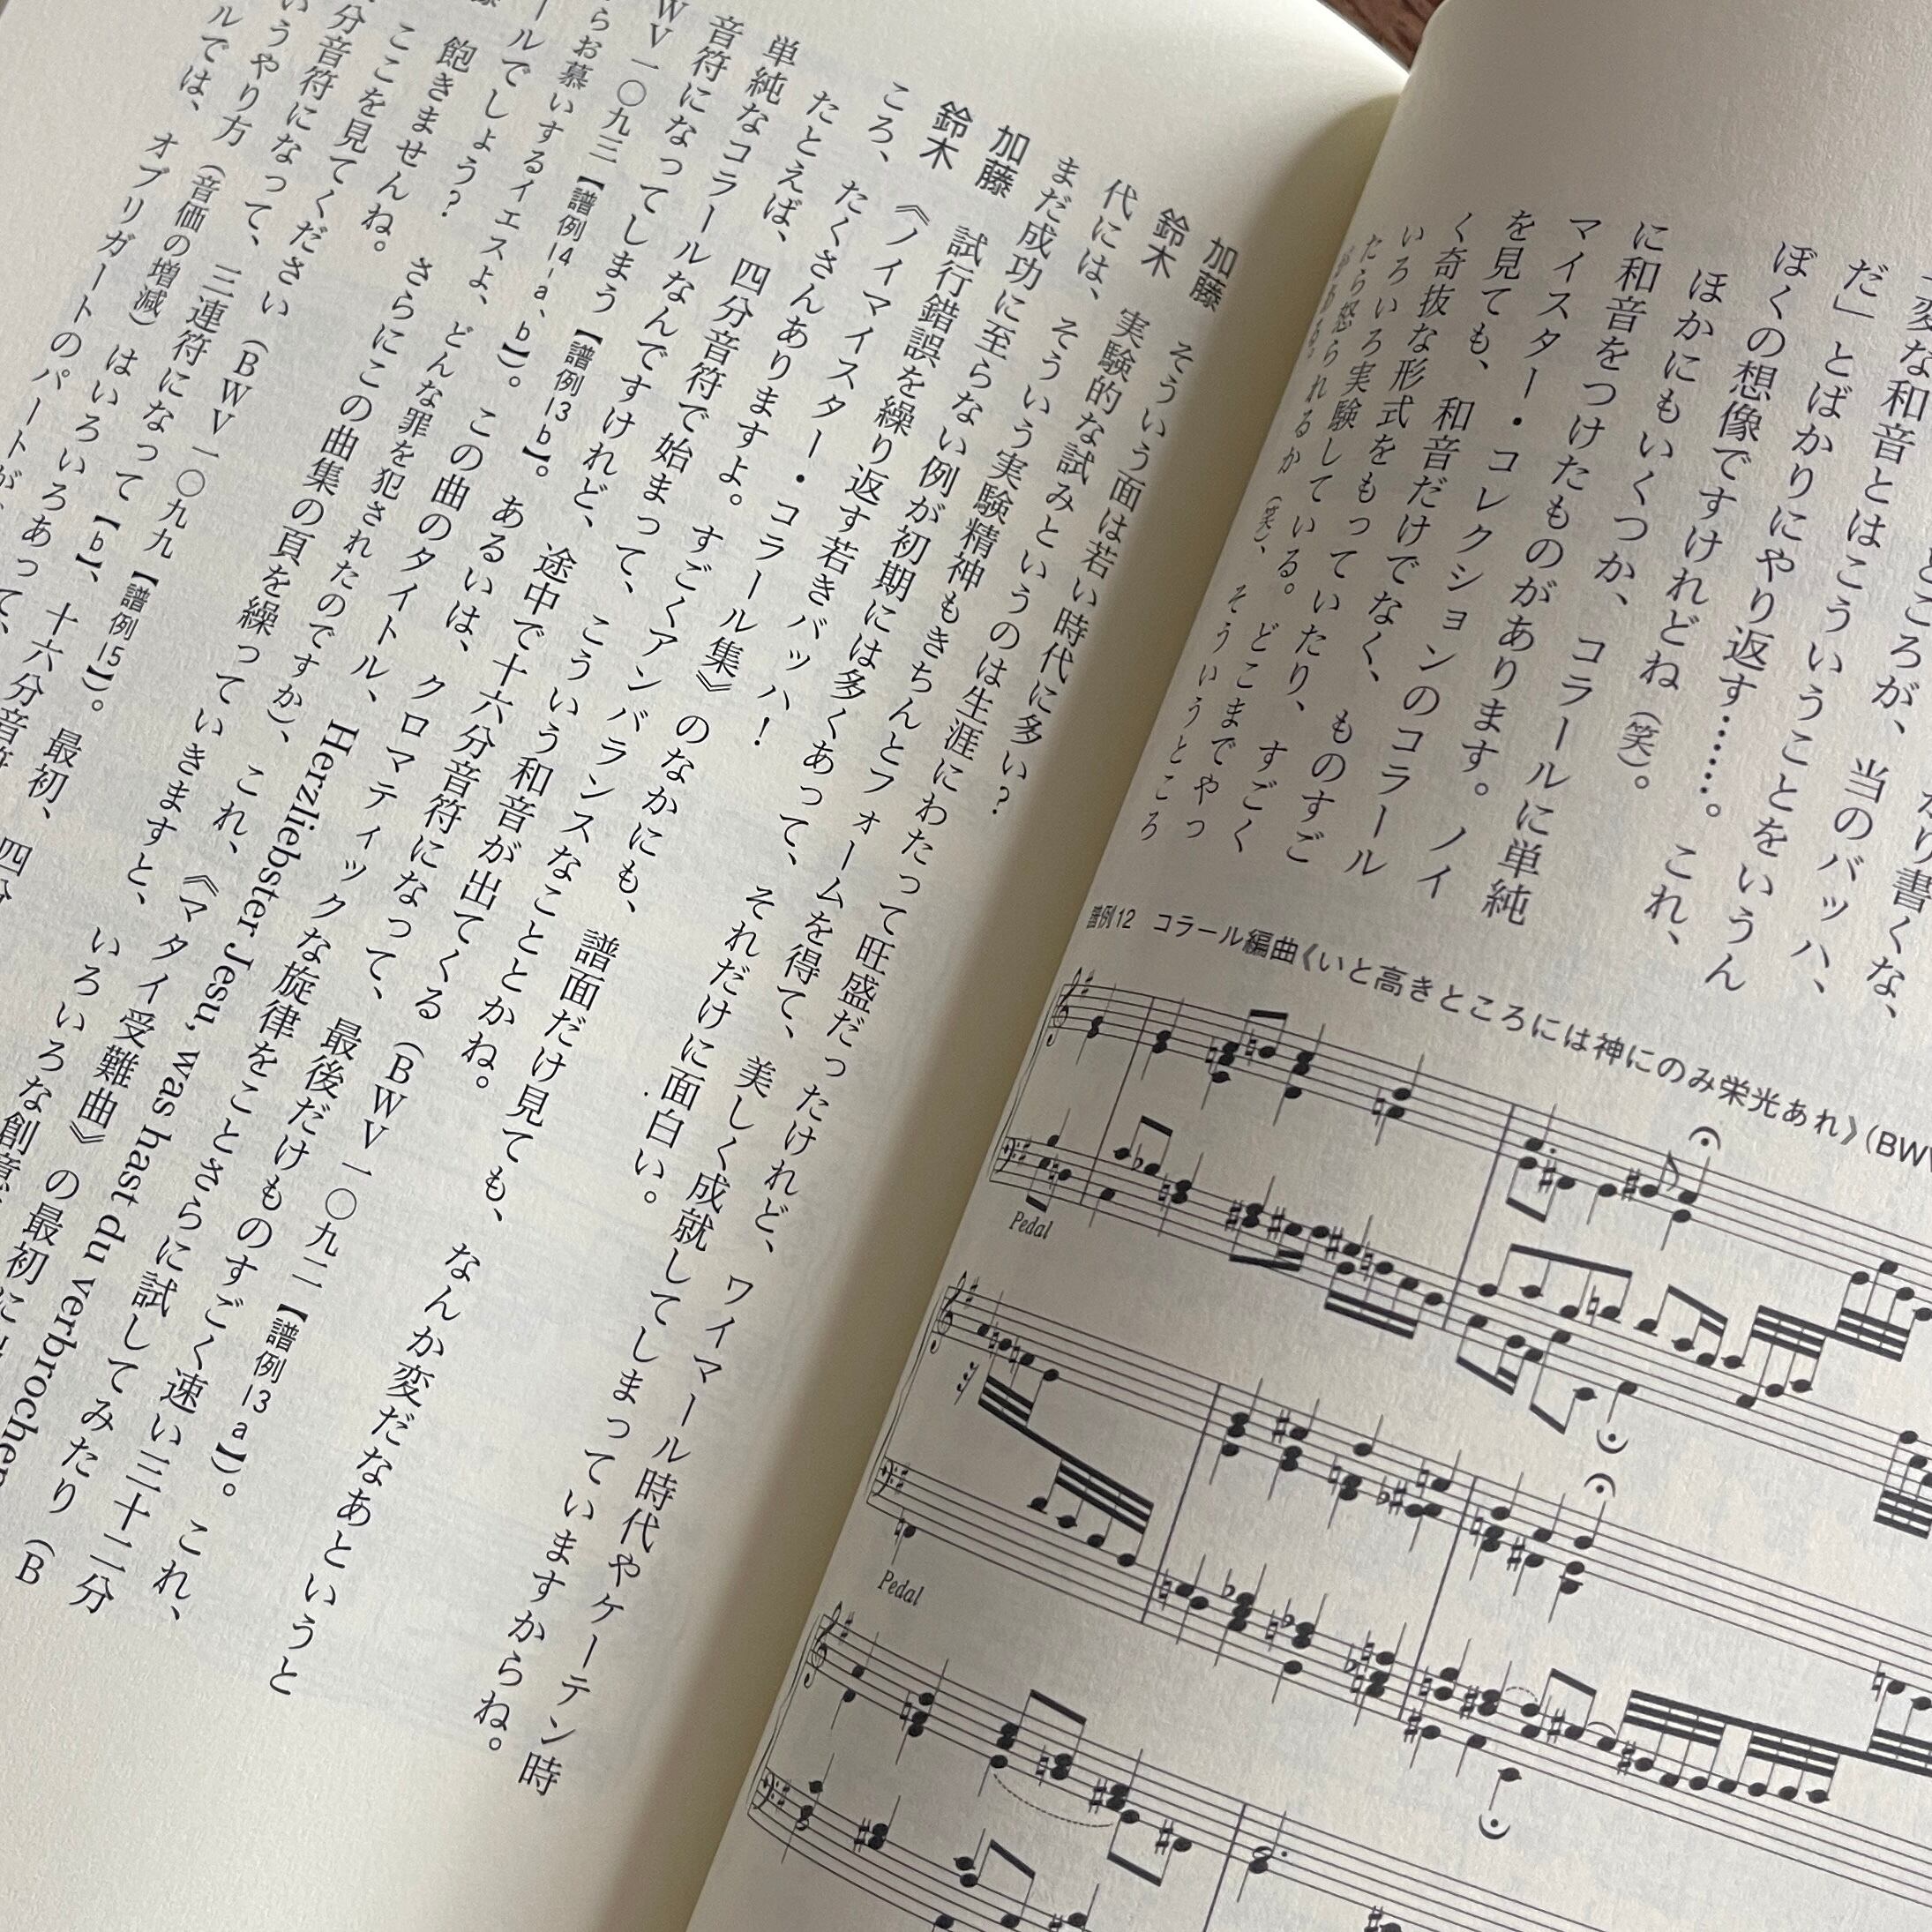 り書くな、
ところが、当のバッハ、
変な和音とはこういうことをいうん
だ」とばかりにやり返す……。これ、
ぼくの想像ですけれどね（笑）。
ほかにもいくつか、コラールに単純
に和音をつけたものがあります。ノイ
マイスター・コレクションのコラール
を見ても、和音だけでなく、ものすご
く奇抜な形式をもっていたり、すごく
いろいろ実験している。どこまでやっ
たら怒られるか（笑）、そういうところ
がある。
譜例12 コラール編曲《いと高きところには神にのみ栄光あれ》（BWV
Pedal
Pedal
加藤　そういう面は若い時代に多い？
鈴木　実験的な試みというのは生涯にわたって旺盛だったけれど、ワイマール時代やケーテン時
代には、そういう実験精神もきちんとフォームを得て、美しく成就してしまっていますからね。
まだ成功に至らない例が初期には多くあって、それだけに面白い。
加藤　試行錯誤を繰り返す若きバッハ！
鈴木　《ノイマイスター・コラール集》のなかにも、譜面だけ見ても、なんか変だなあというと
ころ、たくさんありますよ。すごくアンバランスなこととかね。
たとえば、四分音符で始まって、こういう和音が出てくる（BWV一〇九二【譜例13a】）。これ、
単純なコラールなんですけれど、途中で十六分音符になって、最後だけものすごく速い三十二分
音符になってしまう【譜例13b】。あるいは、クロマティックな旋律をことさらに試してみたり（B
WV一〇九三【譜例14-a、b】）。この曲のタイトル、Herzliebster Jesu, was hast du verbrochen
らお慕いするイエスよ、どんな罪を犯されたのですか）、これ、《マタイ受難曲》の最初に
ールでしょう？　さらにこの曲集の頁を繰っていきますと、いろいろな創意
飽きませんね。
ここを見てください（BWV一〇九九【譜例15】）。最初、四分
分音符になって、三連符になって【b】、十六分音符
いうやり方（音価の増減）はいろいろあって、
ルでは、オブリガートのパートが、